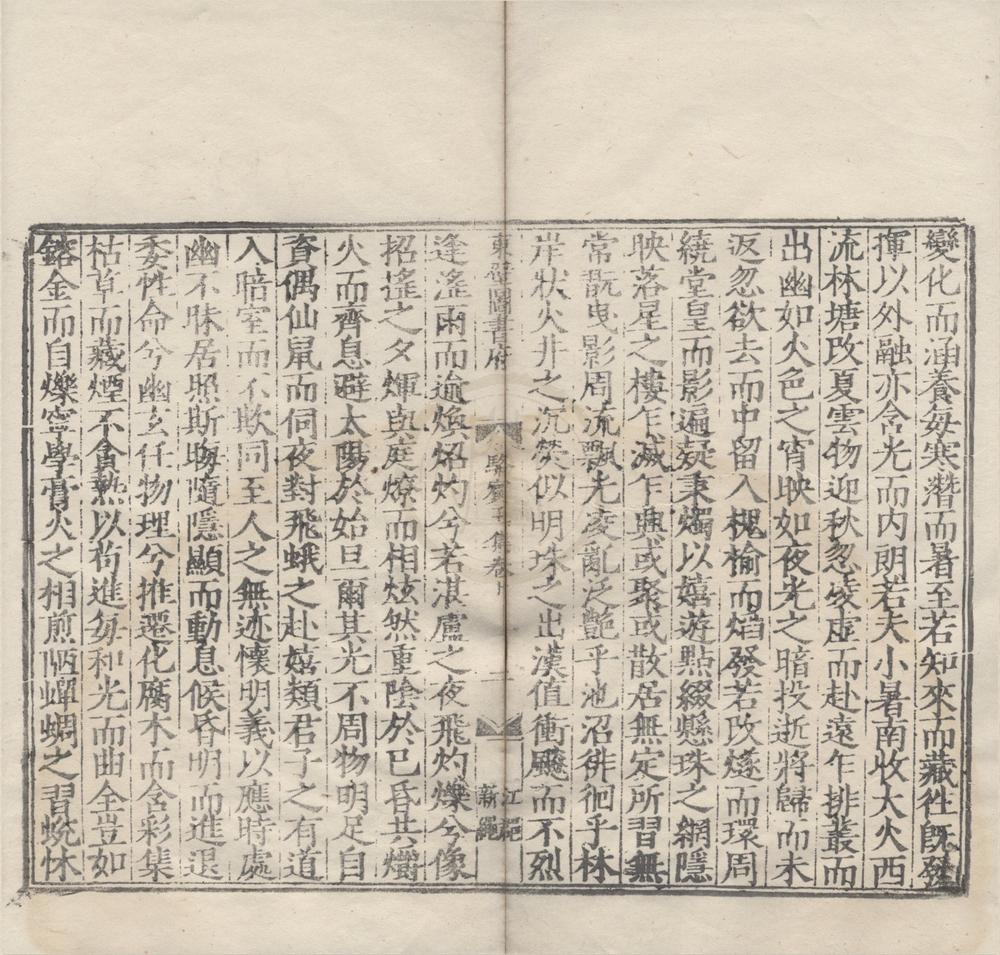 變化而涵養每寒潛而暑至若知來而藏徃旣發
揮以外融亦含光而内朗若夫小暑南收大火西
流林塘改夏雲物迎秋忽凌虚而赴遠乍排叢而
出幽如火色之宵映如夜光之暗投逝將歸而未
返忽欲去而中留入槐榆而焰發若改燧而環周
繞堂皇而影遍疑秉燭以嬉游點綴懸珠之網隱
映落星之樓乍滅乍興或聚或散居無定所習無
常翫曳影周流飄光凌亂泛艶乎池沼徘徊乎林
岸狀火井之沉熒似明珠之出漢值衝飈而不烈
東壁圖書府
駱賓王集卷下
二
江㲄
新䋲
逢滛雨而逾煥焰灼兮若湛盧之夜飛灼爍兮象
招遙之夕煇與庭燎而相炫然重陰於已昏共爝
火而齊息避太陽於始旦爾其光不周物明足自
資偶仙鼠而伺夜對飛蛾之赴嬉類君子之有道
入暗室而不欺同至人之無迹懷明義以應時處
幽不昧居照斯晦隨隱顯而動息候昏明而進退
委性命兮幽玄任物理兮推遷化腐木而含彩集
枯草而藏煙不貪熱以苟進每和光而曲全豈如
鎔金而自爍寧學膏火之相煎陋蟬蜩之習蛻怵